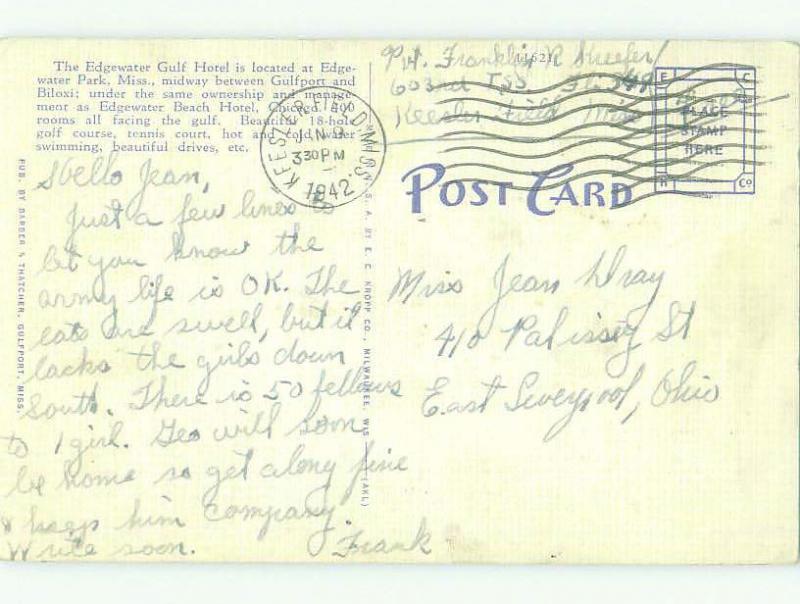 The Edgewater Gulf Hotel is located at Edge-
water Park, Miss., midway between Gulfport and
Biloxi; under the same ownership and manage-
ment as Edgewater Beach Hotel, Chicago. 400
rooms all facing the gulf. Beautiful 18-hole
golf course, tennis court, hot and cold water
swimming, beautiful drives, etc.
PUB. BY BARBER & THATCHER, GULFPORT, MISS.
Hello Jean,
Just a few lines to
let you know the
army life is OK. The
eats are swell, but it
lacks the girls down
South. There is 50 fellows
to 1 girl. Geo will soon
be home so get along fine
& keep him company.
Write soon. Frank
KEESLER FIELD, MISS.
JAN 9
3 30 PM
1942
U. S. A. BY E. C. KROPP CO., MILWAUKEE, WIS. (AKL)
Pvt. Franklin R Keefer
603rd TSS
Keesler Field Miss
PLACE
STAMP
HERE
E C
K Co
POST CARD
Miss Jean Dray
410 Palissey St
East Liverpool, Ohio